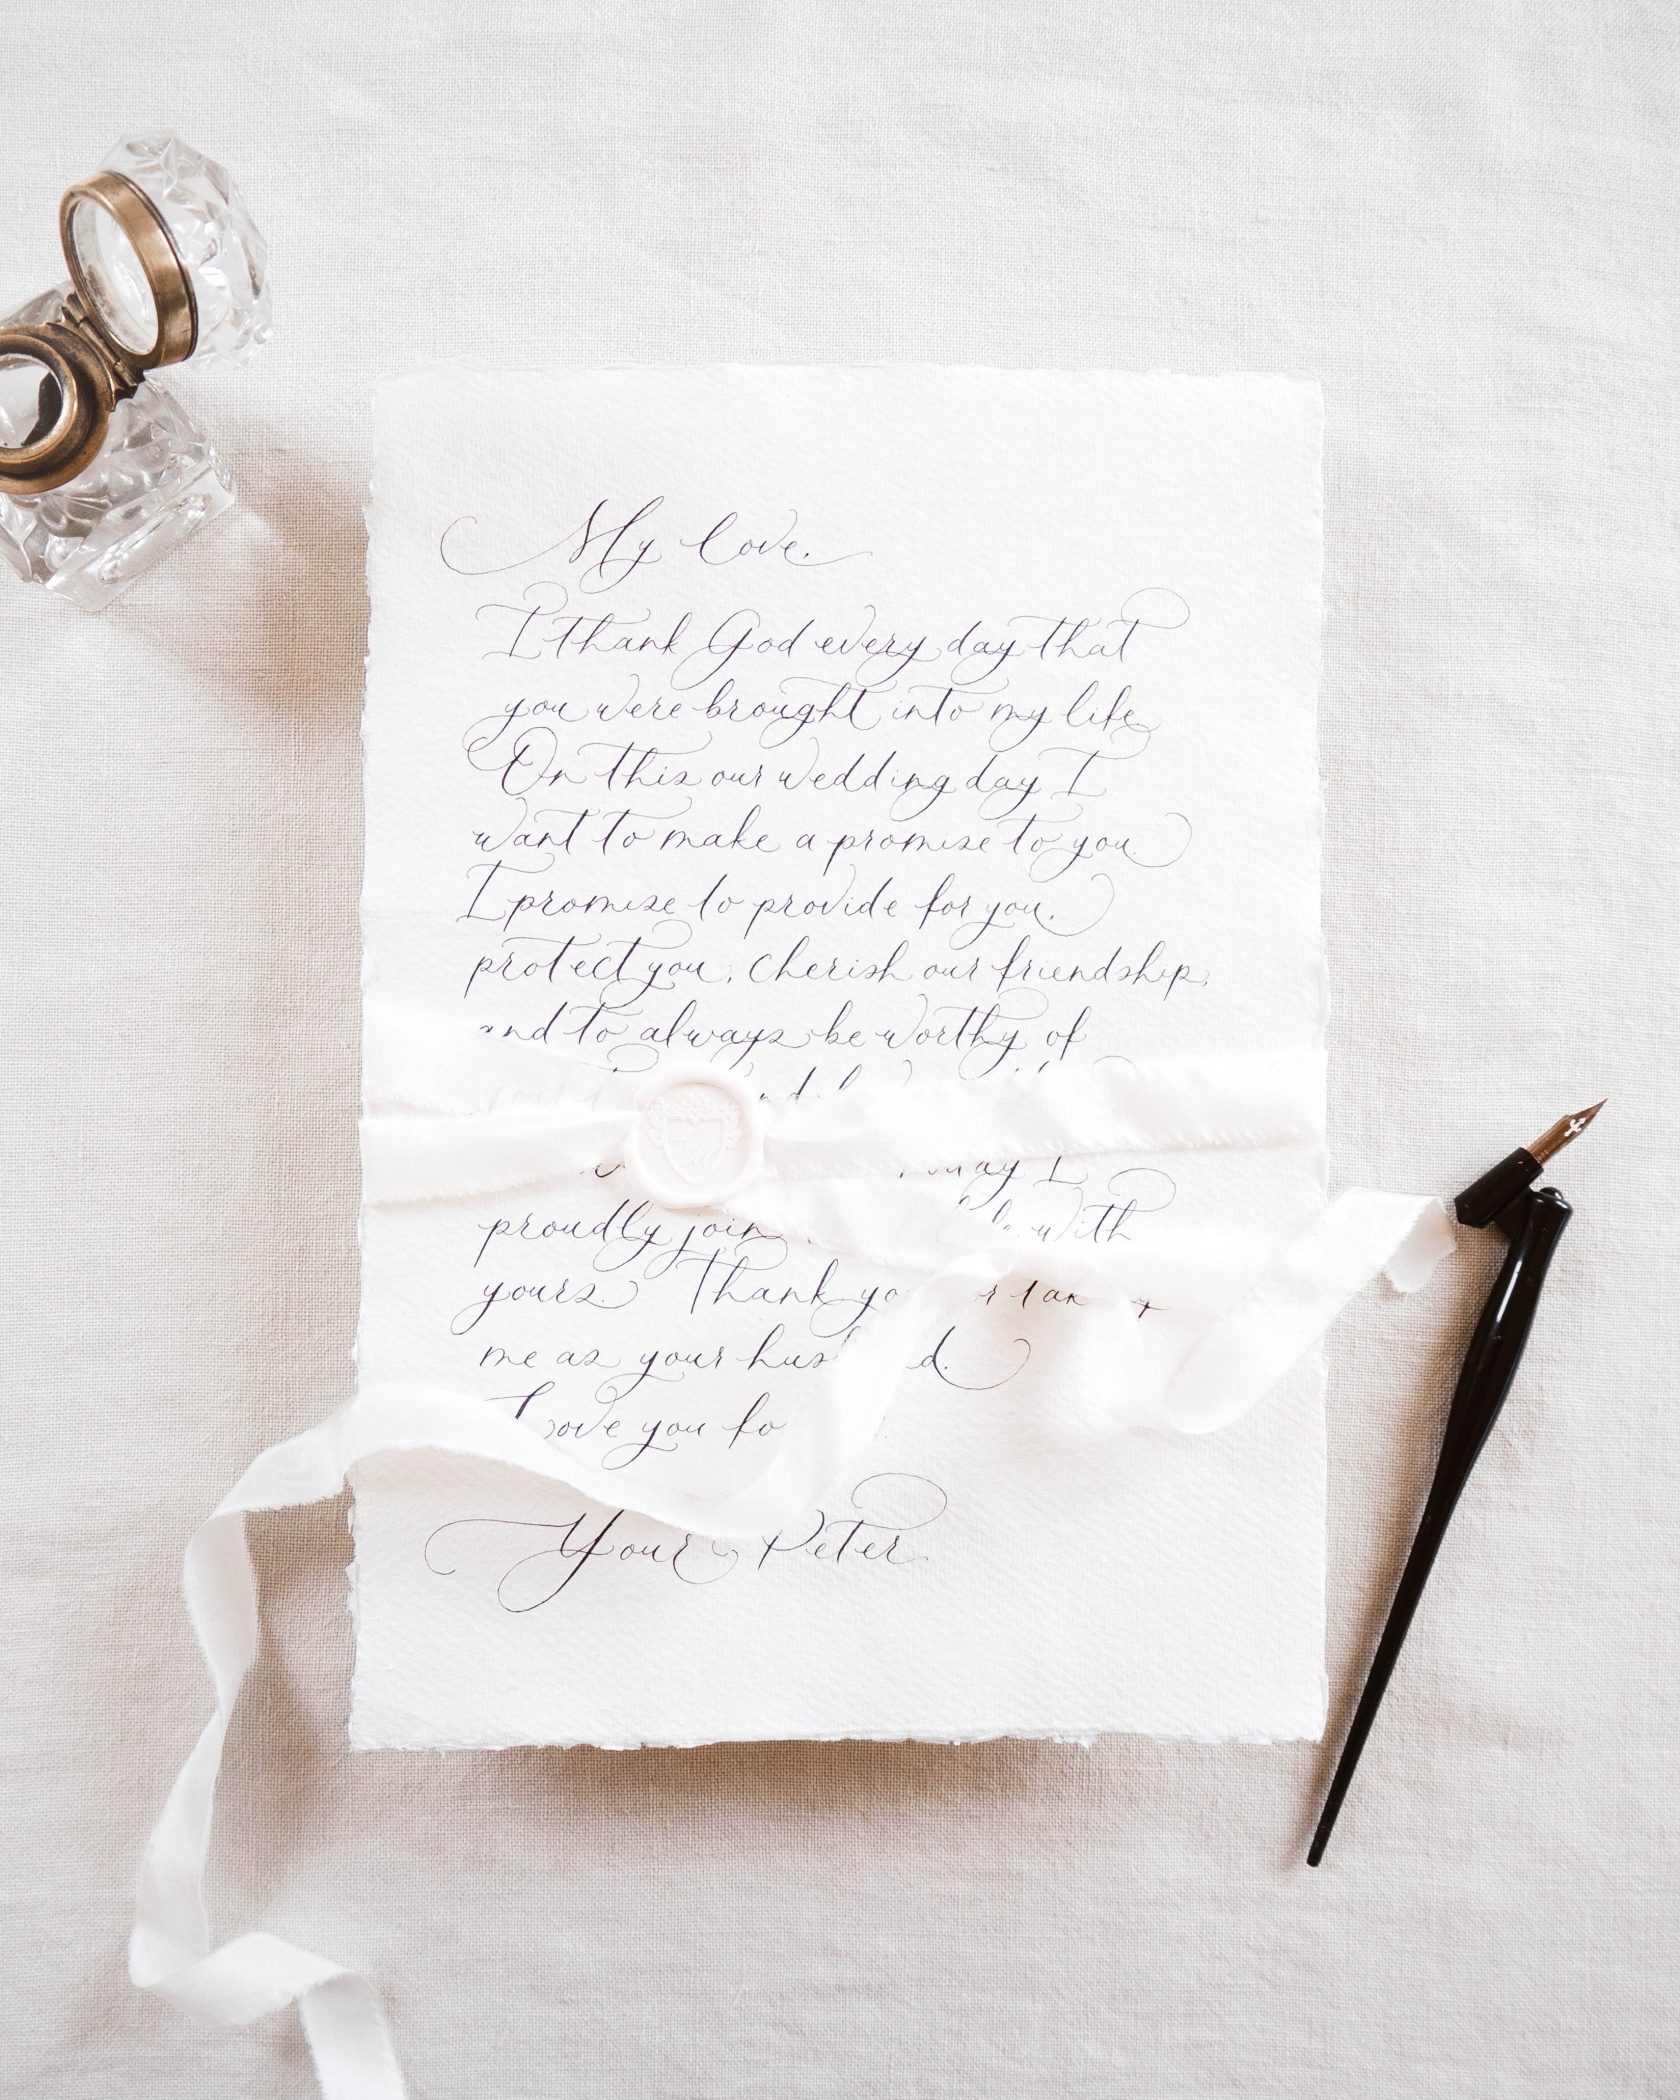 My love,
I thank God every day that
you were brought into my life
On this our wedding day I
want to make a promise to you.
I promise to provide for you,
protect you, cherish our friendship,
and to always be worthy of
may I
proudly join with
yours. Thank
me as your
love you
Your Peter